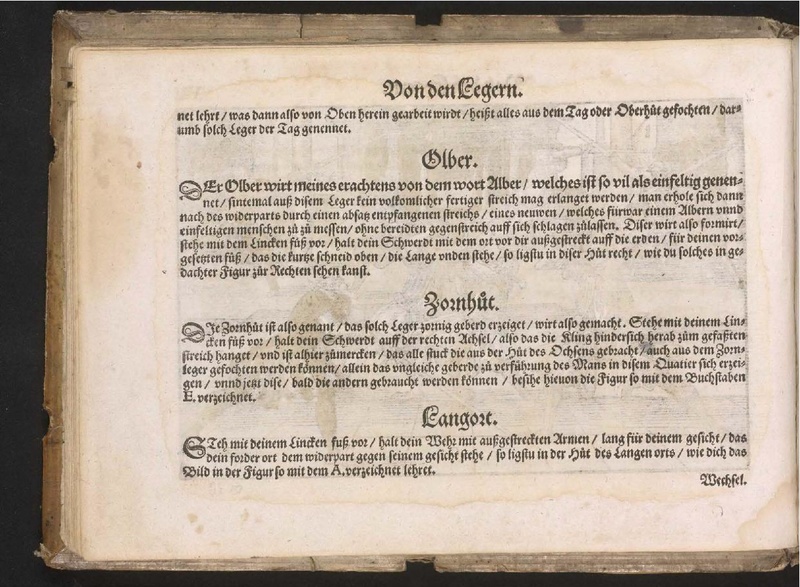 Von den Legern.
net lehrt / was dann also von Oben herein gearbeit wirdt / heißt alles aus dem Tag oder Oberhůt gefochten / dar-
umb solch Leger der Tag genennet.
Olber.
DEr Olber wirt meines erachtens von dem wort Alber / welches ist so vil als einfeltig genen-
net / sintemal auß disem Leger kein volkomlicher fertiger streich mag erlanget werden / man erhole sich dann
nach des widerparts durch einen absatz entpfangenen streichs / eines neuwen / welches fürwar einem Albern vnnd
einfeltigen menschen zů zů messen / ohne bereidten gegenstreich auff sich schlagen zůlassen. Diser wirt also formirt /
stehe mit dem Lincken fůß vor / halt dein Schwerdt mit dem ort vor dir außgestreckt auff die erden / für deinen vor-
gesetzten fůß / das die kurtze schneid oben / die Lange vnden stehe / so ligstu in diser Hůt recht / wie du solches in ge-
dachter Figur zůr Rechten sehen kanst.
Zornhůt.
DJe Zornhůt ist also genant / das solch Leger zornig geberd erzeiget / wirt also gemacht. Stehe mit deinem Lin-
cken fůß vor / halt dein Schwerdt auff der rechten Achsel / also das die Kling hindersich herab zům gefaßten
streich hanget / vnd ist alhier zůmercken / das alle stuck die aus der Hůt des Ochsens gebracht / auch aus dem Zorn-
leger gefochten werden können / allein das vngleiche geberde zů verführung des Mans in disem Quatier sich erzei-
gen / vnnd jetzt dise / bald die andern gebraucht werden können / besihe hieuon die Figur so mit dem Buchstaben
E. verzeichnet.
Langort.
STeh mit deinem Lincken fuß vor / halt dein Wehr mit außgestreckten Armen / lang für deinem gesicht / das
dein forder ort dem widerpart gegen seinem gesicht stehe / so ligstu in der Hůt des Langen orts / wie dich das
Bild in der Figur so mit dem A. verzeichnet lehret.
Wechsel.